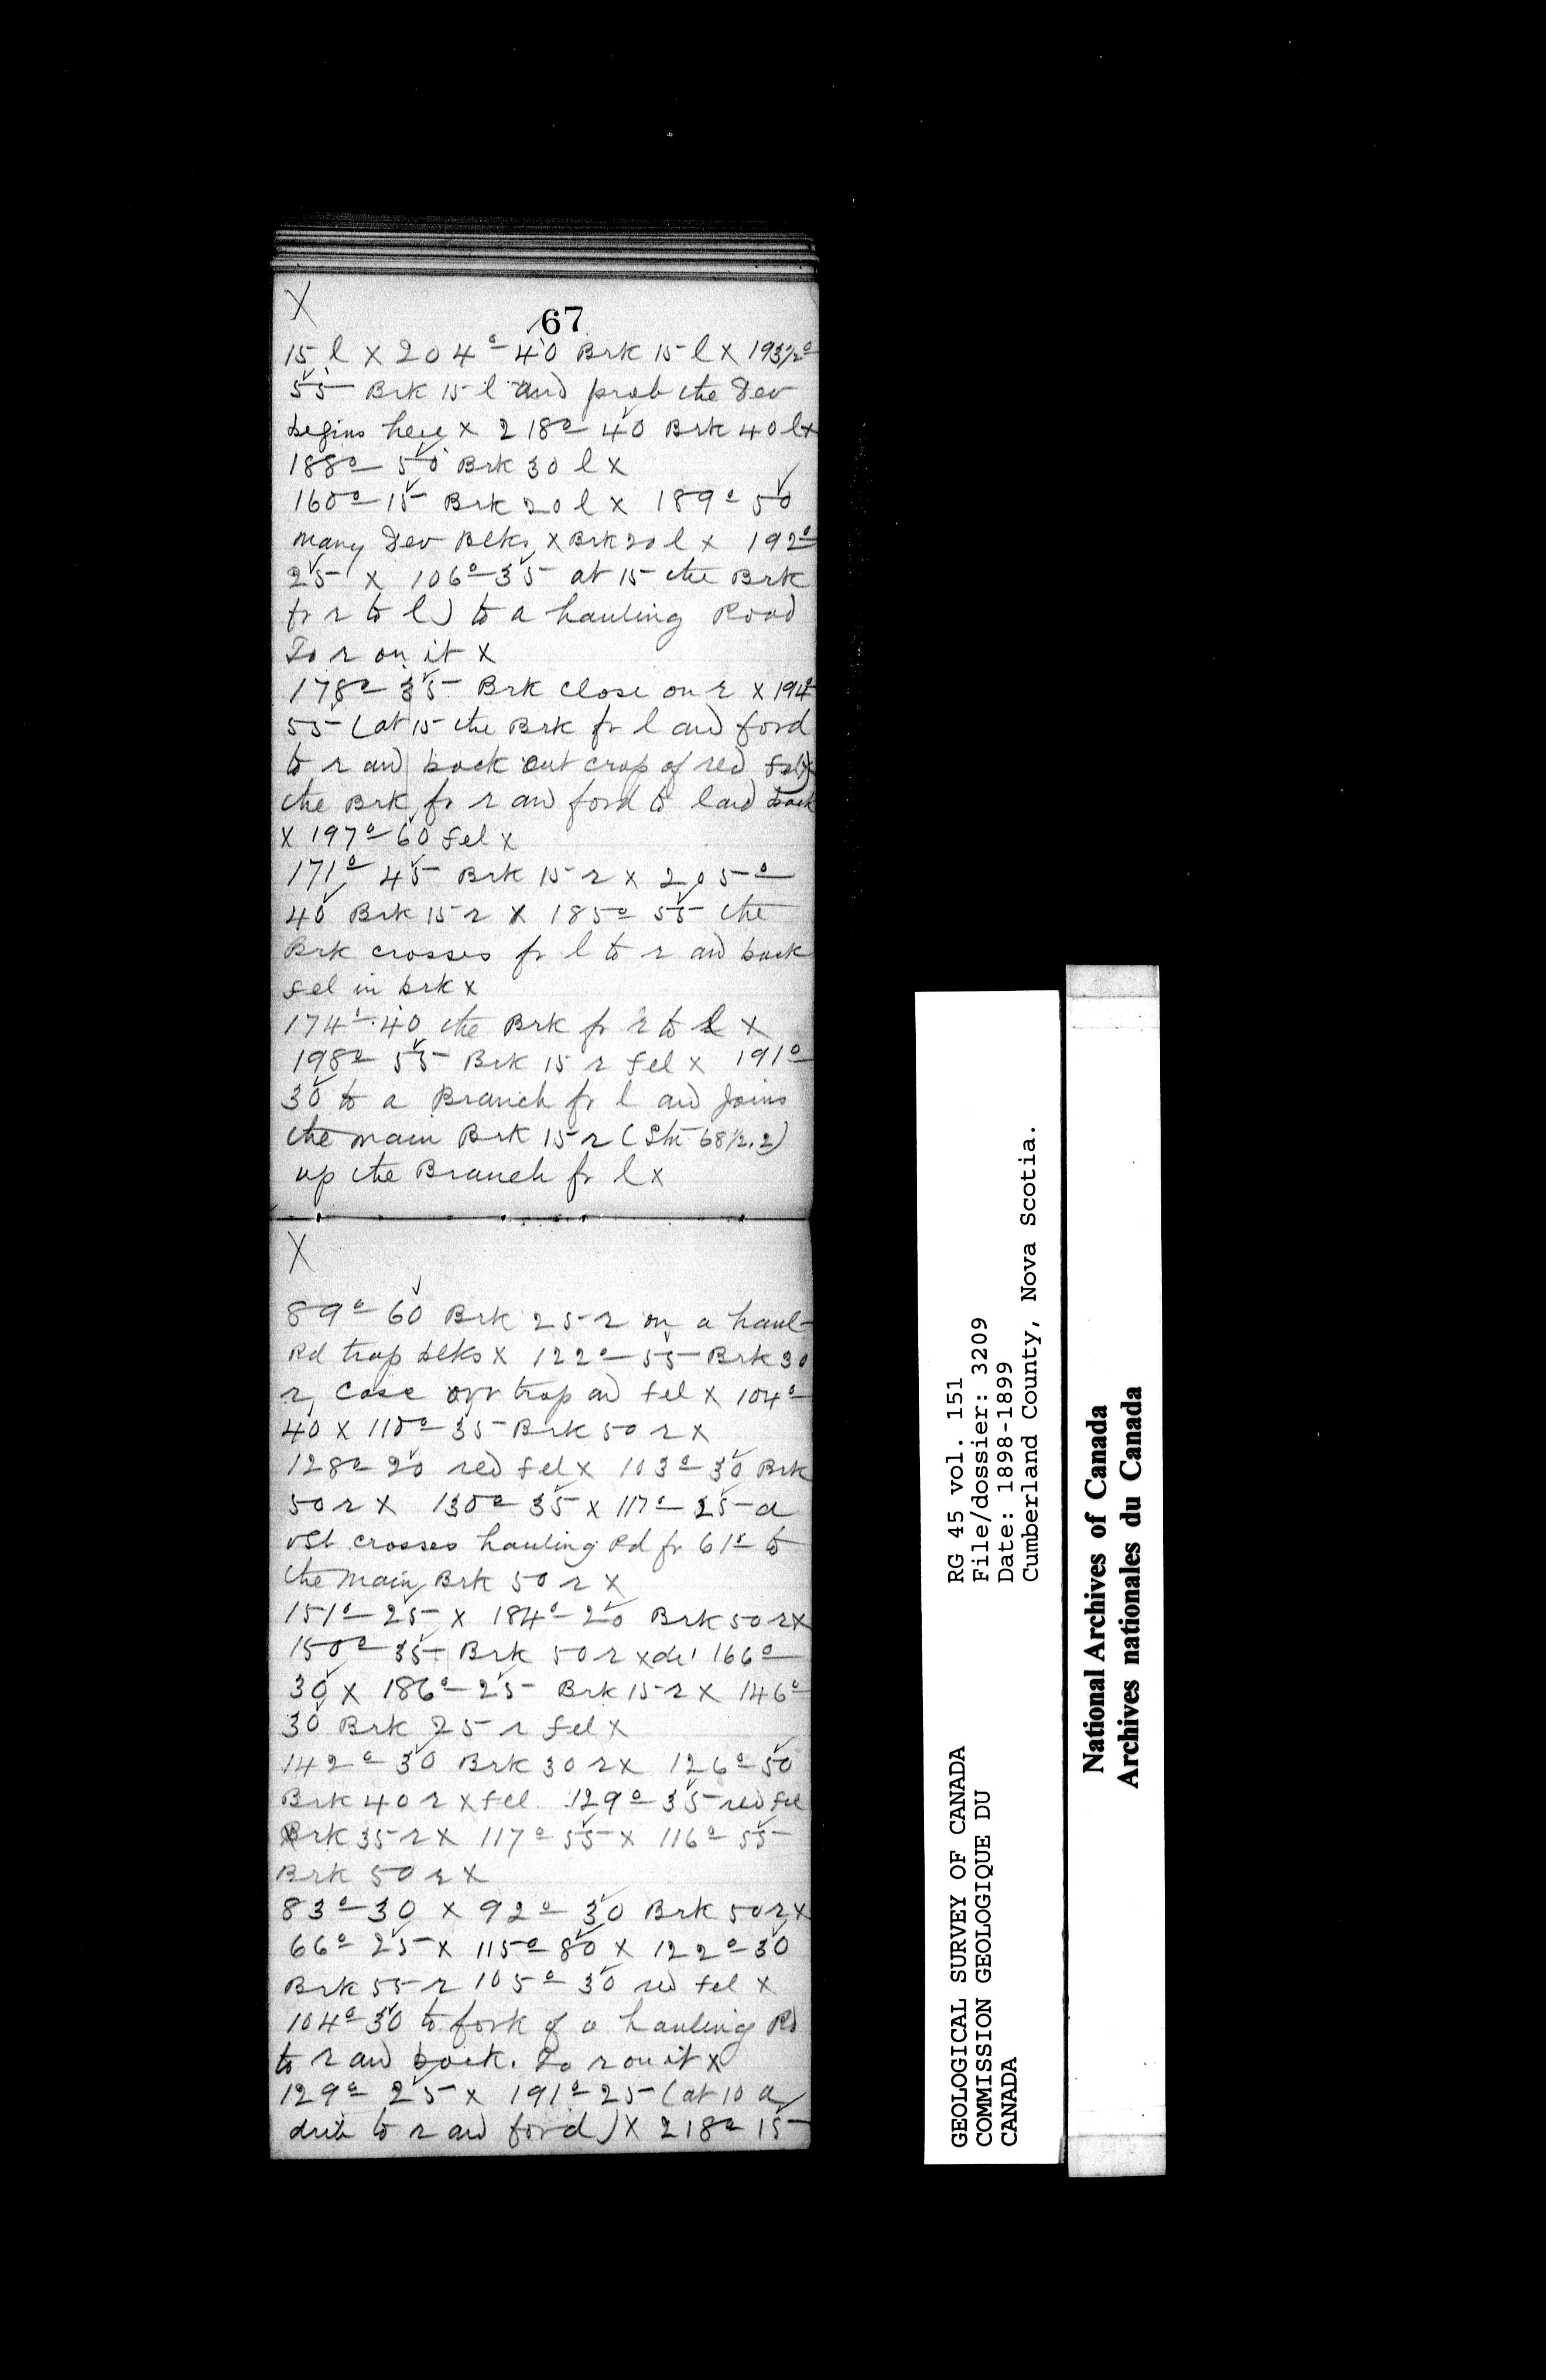 X
67
15 l x 204° 40 Brk 15 l x 193½°
55 Brk 15 l and prob the Dev
begins here x 218° 40 Brk 40 l x
188° 50 Brk 30 l x
160° 15 Brk 20 l x 189° 50
many Dev Blks x Brk 20 l x 192°
25 x 106° 35 at 15 the Brk
fr r to l) to a hauling Road
To r on it x
178° 35 Brk close on r x 194°
55 (at 15 the Brk fr l and ford
to r and back out crop of red fel)
the Brk fr r and ford to l and back
x 197° 60 fel x
171° 45 Brk 15 r x 205°
40 Brk 15 r x 185° 55 the
Brk crosses fr l to r and back
fel in brk x
174° 40 the Brk fr r to l x
198° 55 Brk 15 r fel x 191°
30 to a Branch fr l and Joins
the main Brk 15 r ( 68½.2)
up the Branch fr l x
X
89° 60 Brk 25 r on a haul-
Rd trap blks x 122° 55 Brk 30
r, Case trap and fel x 104°
40 x 110° 35 Brk 50 r x
128° 20 red fel x 103° 30 Brk
50 r x 130° 35 x 117° 25 a
crosses hauling Rd fr 61° to
the Main Brk 50 r x
151° 25 x 184° 20 Brk 50 r x
150° 35 Brk 50 r x 166°
30 x 186° 25 Brk 15 r x 146°
30 Brk 25 r fel x
142° 30 Brk 30 r x 126° 50
Brk 40 r x fel 129° 35 red fel
Brk 35 r x 117° 55 x 116° 55
Brk 50 r x
83° 30 x 92° 30 Brk 50 r x
66° 25 x 115° 80 x 122° 30
Brk 55 r 105° 30 red fel x
104° 30 to fork of a hauling Rd
to r and back. To r on it x
129° 25 x 191° 25 (at 10 a
to r and ford) x 218° 15
GEOLOGICAL SURVEY OF CANADA
COMMISSION GEOLOGIQUE DU
CANADA
RG 45 vol. 151
File/dossier: 3209
Date: 1898-1899
Cumberland County, Nova Scotia.
National Archives of Canada
Archives nationales du Canada